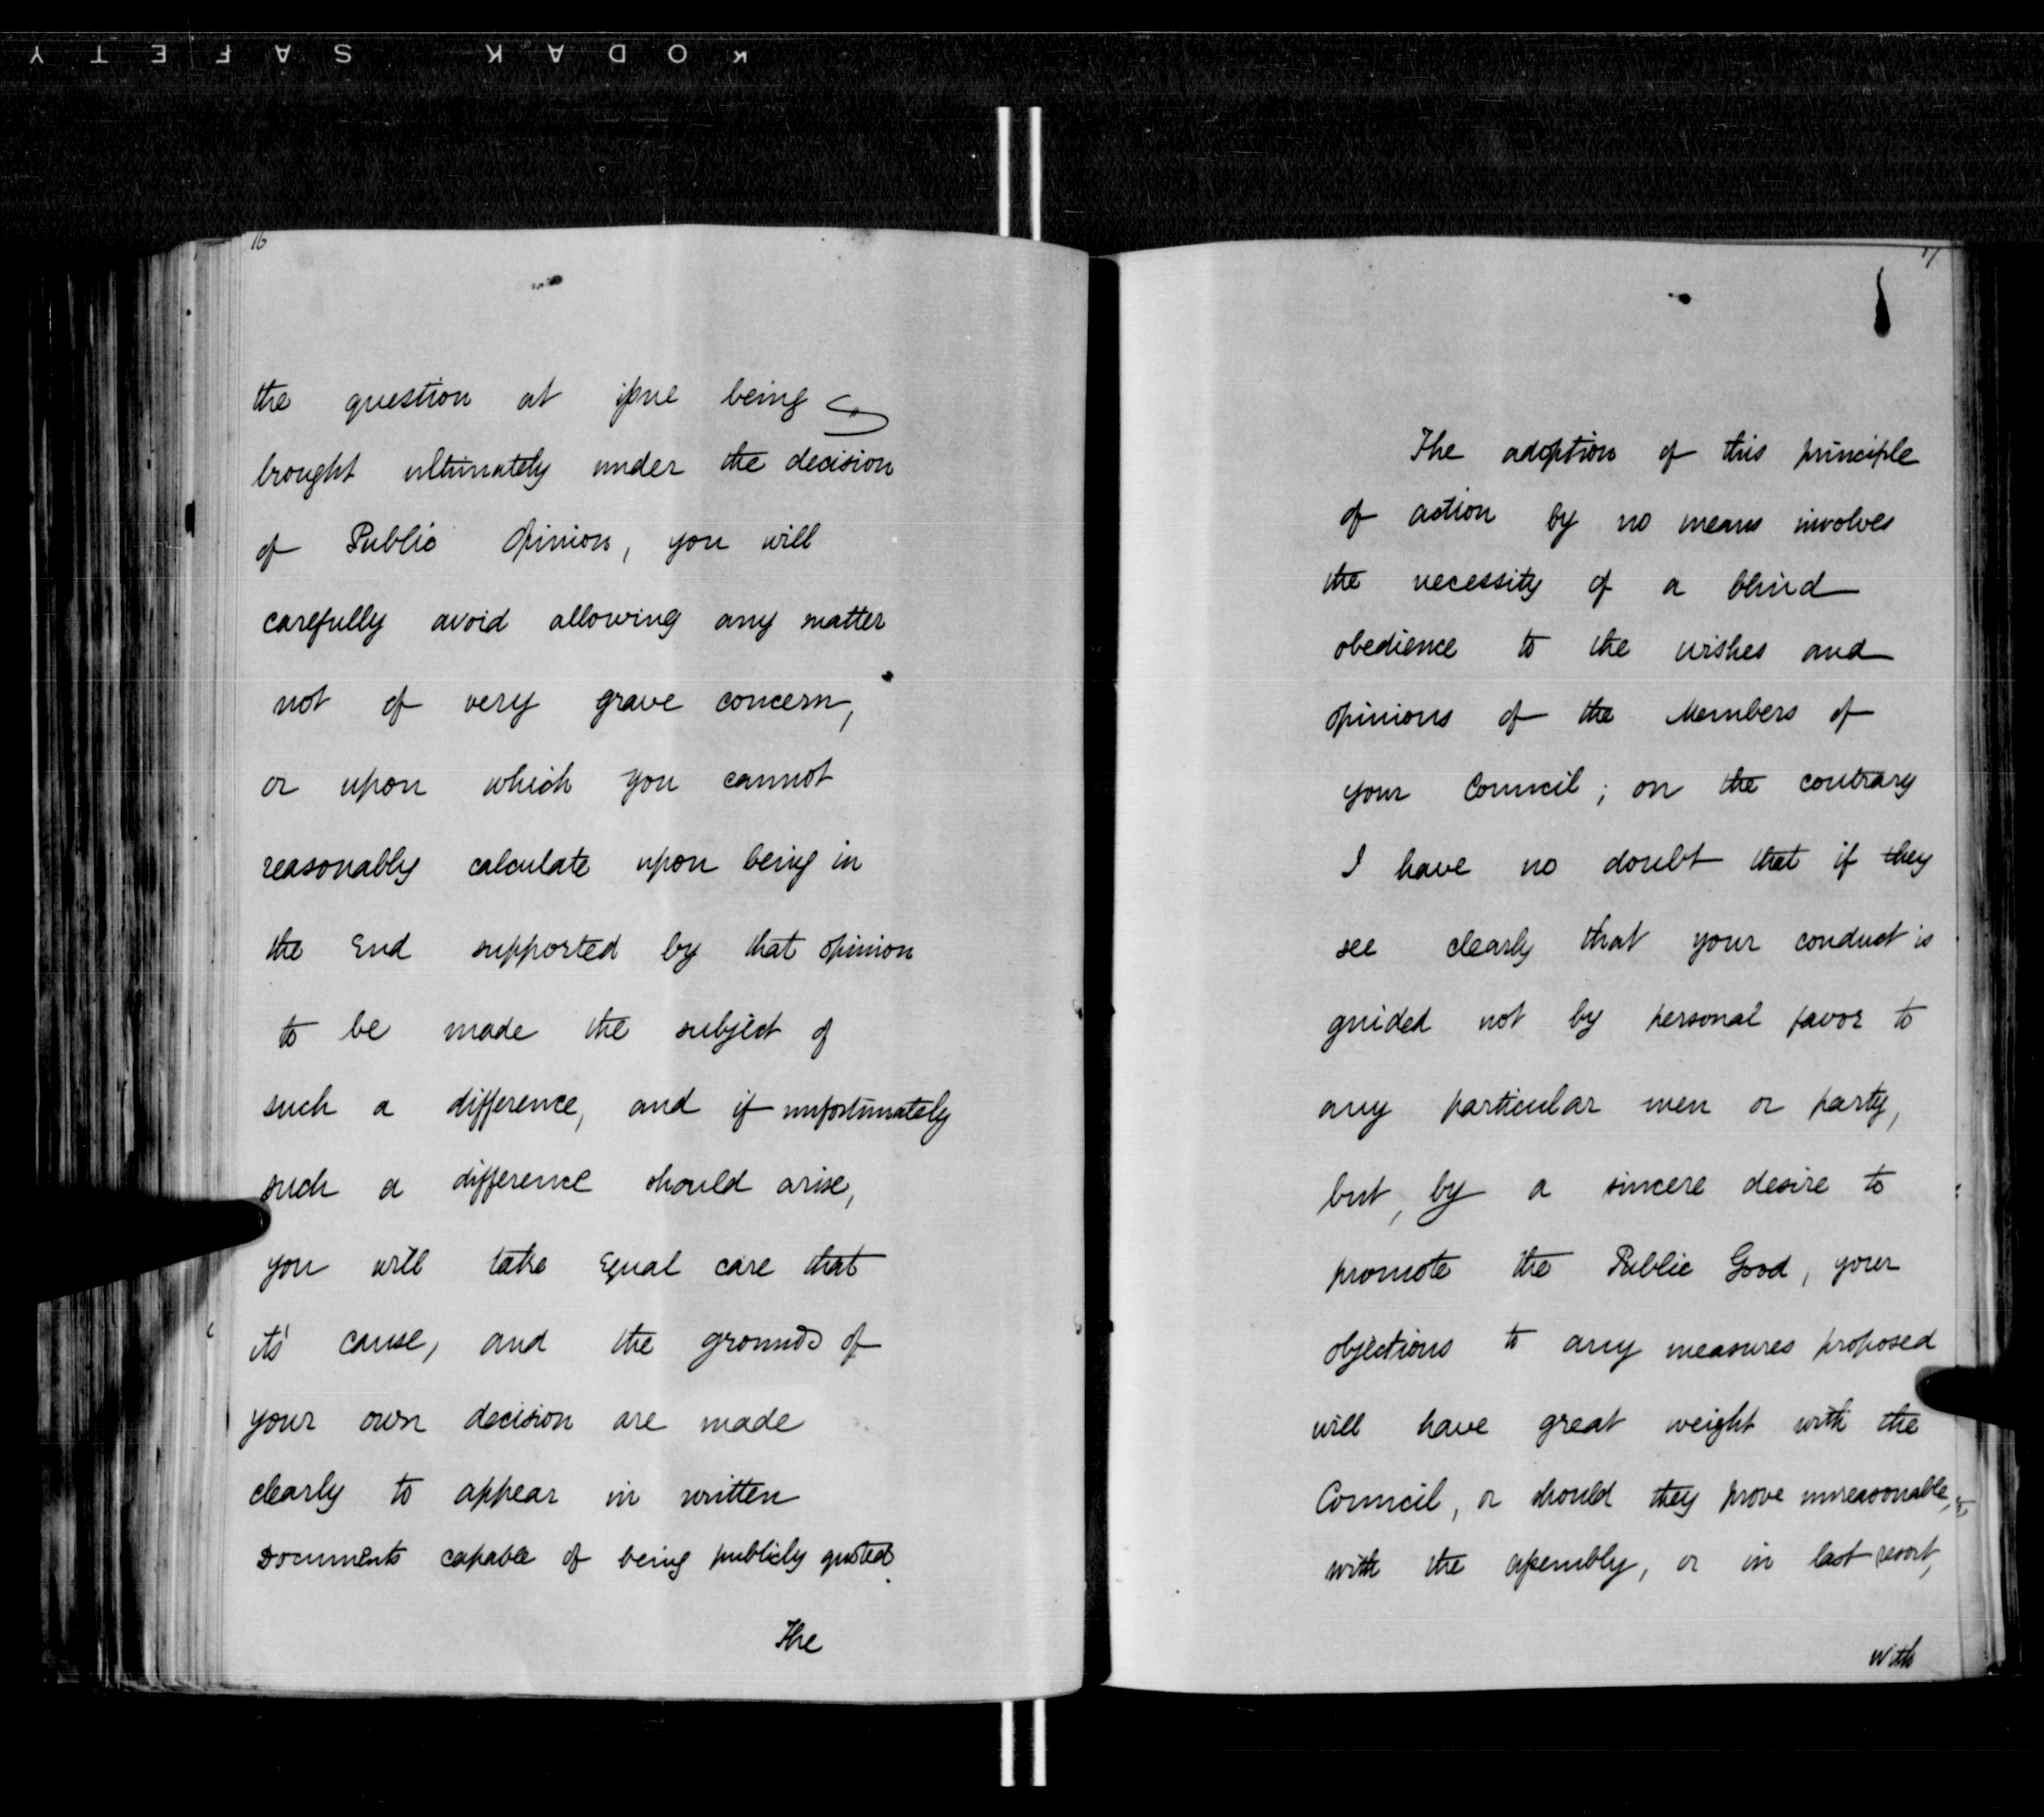 KODAK SAFETY
16
the question at issue being
brought ultimately under the decision
of Public Opinion, you will
carefully avoid allowing any matter
not of very grave concern,
or upon which you cannot
reasonably calculate upon being in
the End supported by that opinion
to be made the subject of
such a difference, and if unfortunately
such a difference should arise,
you will take Equal care that
it's cause, and the grounds of
your own decision are made
clearly to appear in written
Documents capable of being publicly quoted.
The
17
The adoption of this principle
of action by no means involves
the necessity of a blind
obedience to the wishes and
opinions of the Members of
your Council; on the contrary
I have no doubt that if they
see clearly that your conduct is
guided not by personal favor to
any particular men or party,
but, by a sincere desire to
promote the Public Good, your
objections to any measures proposed
will have great weight with the
Council, or should they prove unreasonable,
with the assembly, or in last resort,
with